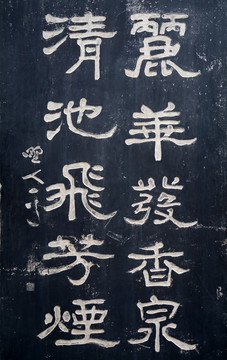 麗華發香泉
清池飛芳煙